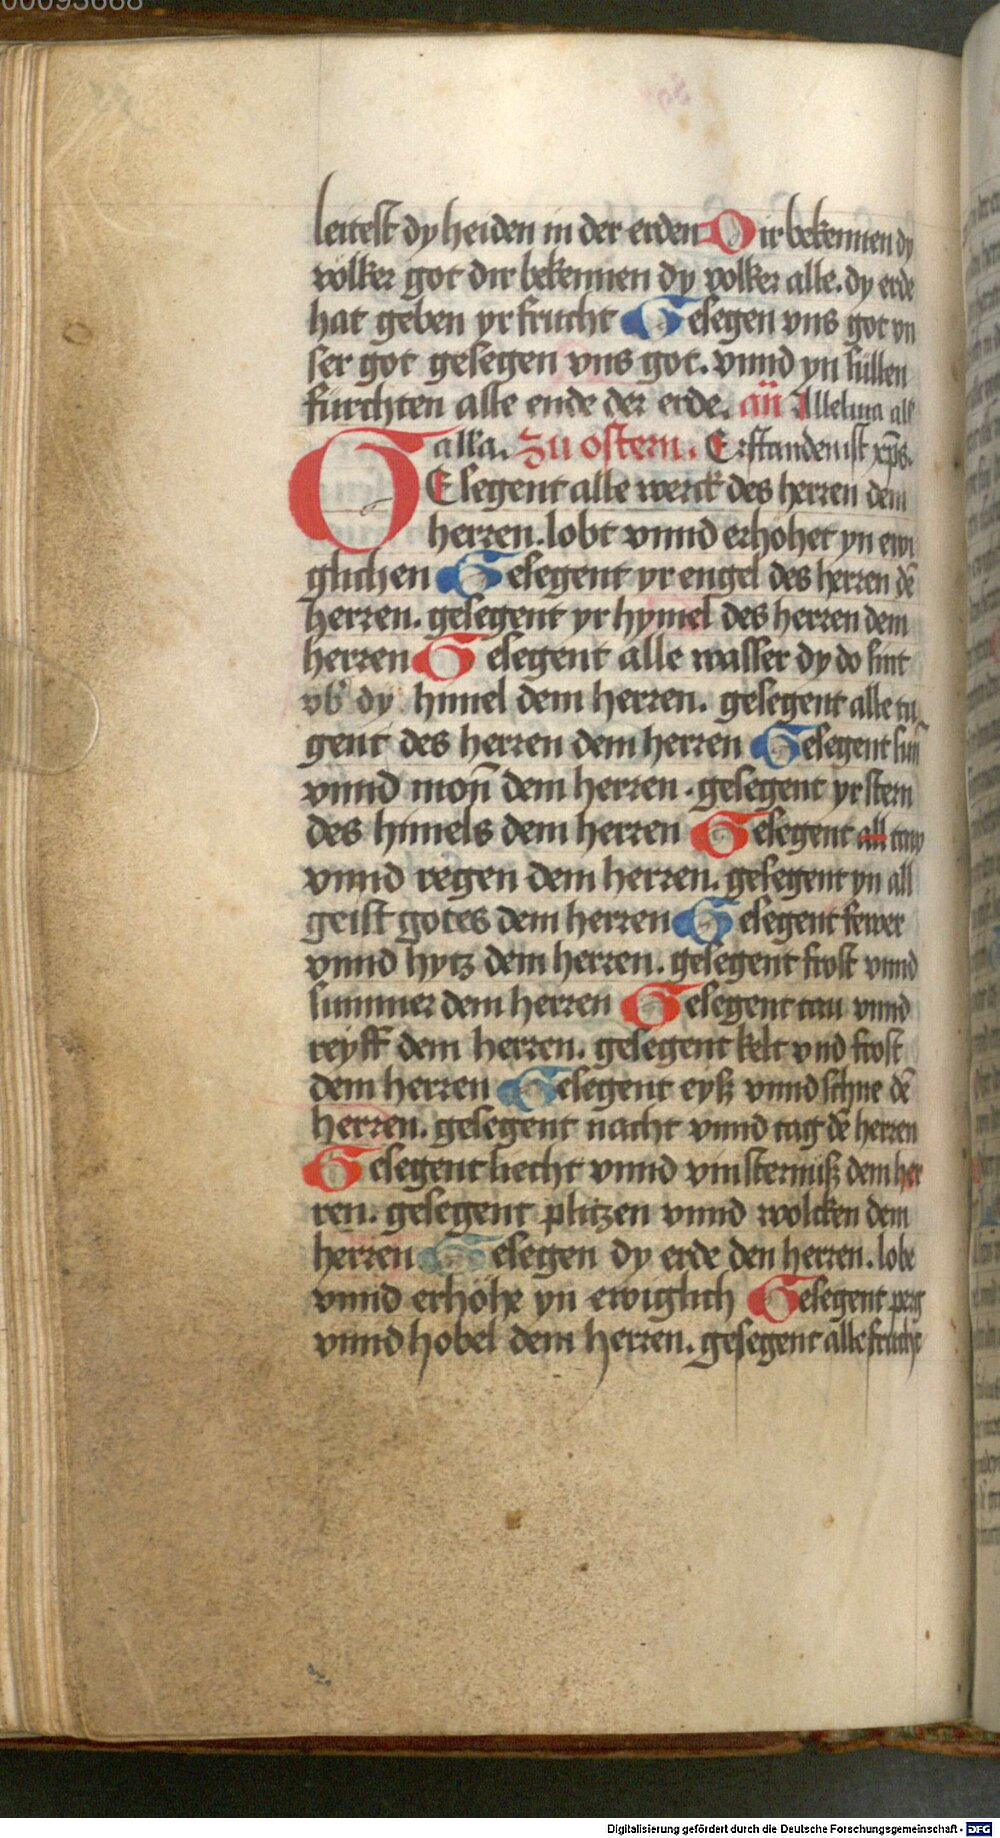 00093668
leitest dy heiden in der erden Dir bekennen dy
volker got dir bekennen dy volker alle. dy erde
hat geben yr frucht Gesegen vns got vn
ser got gesegen vns got. vnnd yn sullen
furchten alle ende der erde. an̄ Alleluia all
alla. Zu ostern. Erstanden ist xp̄s.
GEsegent alle werck des herren dem
herren. lobt vnnd erhohet yn ewi
glichen Gesegent yr engel des herren dē
herren. gesegent yr hymel des herren dem
herren Gesegent alle wasser dy do sint
vb' dy himel dem herren. gesegent alle tu
gent des herren dem herren Gesegent sun̄
vnnd mon̄ dem herren. gesegent yr stern
des himels dem herren Gesegent all taw
vnnd regen dem herren. gesegent yn all
geist gotes dem herren Gesegent fewer
vnnd hytz dem herren. gesegent frost vnnd
summer dem herren Gesegent tau vnnd
reyff dem herren. gesegent kelt vnd frost
dem herren Gesegent eysz vnnd schne dē
herren. gesegent nacht vnnd tag dē herren
Gesegent liecht vnnd vinsternisz dem her
ren. gesegent plitzen vnnd wolcken dem
herren Gesegen dy erde den herren. lobe
vnnd erhohe yn ewiglich Gesegent perg
vnnd hobel dem herren. gesegent alle frucht
Digitalisierung gefördert durch die Deutsche Forschungsgemeinschaft - DFG